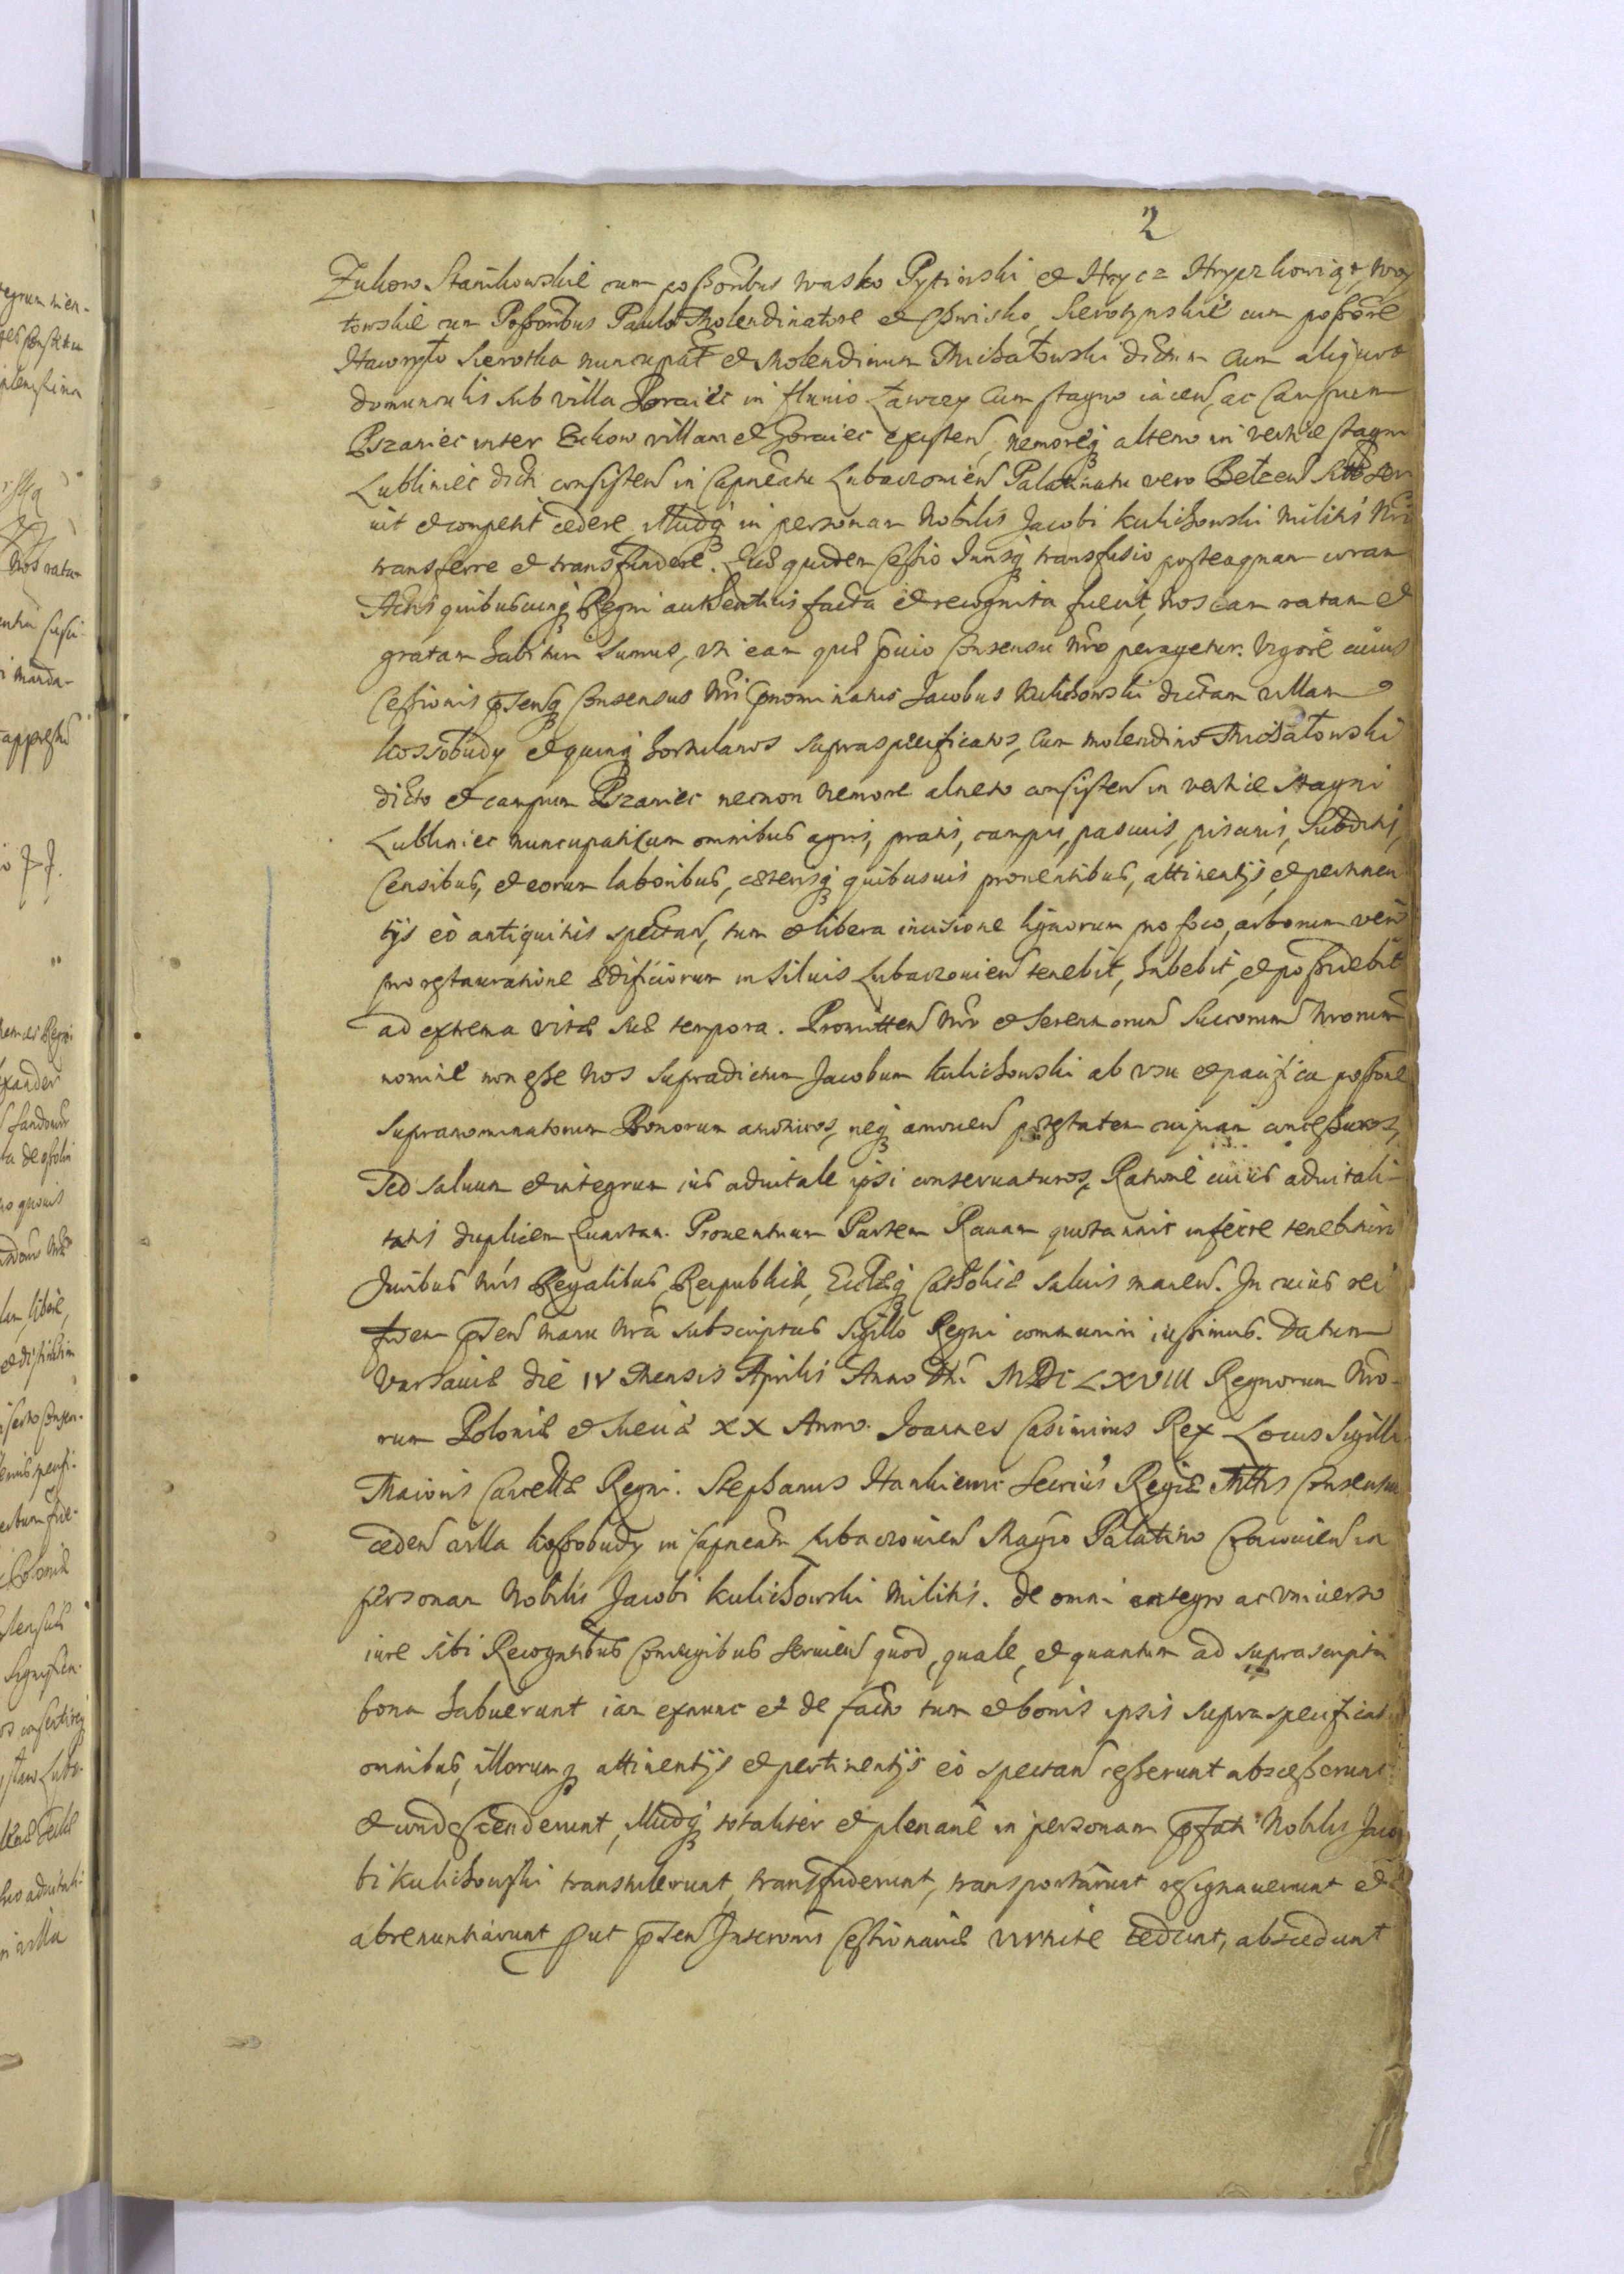 2
Zukow Stanikowskie cum possoribus Wasko Pytinski et Hrycz Hryczkowięta, Woy
towskie cum Possoribus Paulo Molendinatore et Iwisko, Sierotynskie cum possore
Hawryło Sierotka nuncupat et Molendinum Michałowski dictum cum aliquot
domunculis sub villa Goraiec in fluvio Ławrey cum stagno iacen, ac Campum
Pszaniec inter Eukow villam et Goraiec existen, nemoreq alteno in vertice stagni
Lubliniec dicti consisten in Capneatu Lubaczovien Palatinatu vero Bełzen
uit et competit cedere, illudq in personam Nobilis Jacobi Kulichowski Militis Nri
transferre et transfundere. Quæ quidem Cessio Iurisq transfusio posteaquam coram
Actis quibuscunq Regni authenticis facta et recognita fuerit, nos eam ratam et
gratam habituri sumus, uti eam quæ pvio Consensu Nro peragetur. Vigore cuius
Cessionis psensq Consensus Nri pnominatus Jacobus Kulichowski dictam villam
Kossobudy et quinq hortulanos supraspecificatos, cum molendino Michałowski
dicto et campum Pszaniec necnon Nemore alneto consisten in vertice Stagni
Lubliniec nuncupati cum omnibus agris, pratis, campis, pascuis, piscinis, Subditis,
Censibus, et eorum laboribus, cæterisq quibusuis prouentibus, attinentijs, et pertinen
tijs eò antiquitus spectan, tum et libera incisione lignorum pro foco, arborum verò
pro restauratione ædificiorum in Siluis Lubaczouien tenebit, habebit, et possidebit
ad extrema vitæ suæ tempora. Promitten Nro et Serenmorum Succorum Nrorum
nomine non esse Nos supradictum Jacobum Kulichowski ab usu et pacifica possone
supranominatorum Bonorum amoturos, neq amouen potestatem cuipiam concessuros,
Sed saluum et integrum ius aduitale ipsi conseruaturos, Ratione cuius aduitali-
tatis duplicem Quartam Prouentuum Partem Rauam quotannis inferre tenebitur
Juribus Nris Regalibus, Reipublicæ, Ecclæq Catholicæ saluis manen. In cuius rei
fidem psen manu Nra subscriptas Sigillo Regni communiri iussimus. Datum
Varsauiæ die IV Mensis Aprilis Anno Dni MDCLXVIII Regnorum Nro-
rum Poloniæ et Sueciæ XX Anno. Joannes Casimirus Rex Locus Sigilli
Maioris Cancellæ Regni. Stephanus Hankiewic Secrius Regiæ Mttis Consensus
ceden villa Kossobudy in Capneatu Lubaczouien Magco Palatino Cracouien in
personam Nobilis Jacobi Kulichowski Militis. de omni integro ac vniuerso
iure sibi Recogntibus Coniugibus Seruien quod, quale, et quantum ad suprascripta
bona habuerunt iam exnunc et de facto tum et bonis ipsis supraspecificat
omnibus, illorumq attinentijs et pertinentijs eò spectan cesserunt abscesserunt
et condescenderunt, illudq totaliter et plenariè in personam pfati Nobilis Jaco
bi Kulichowski transtulerunt, transfuderunt, transportarunt resignauerunt et
abrenuntiarunt put psen Inscronis Cessionariæ virtute cedunt, abscedunt